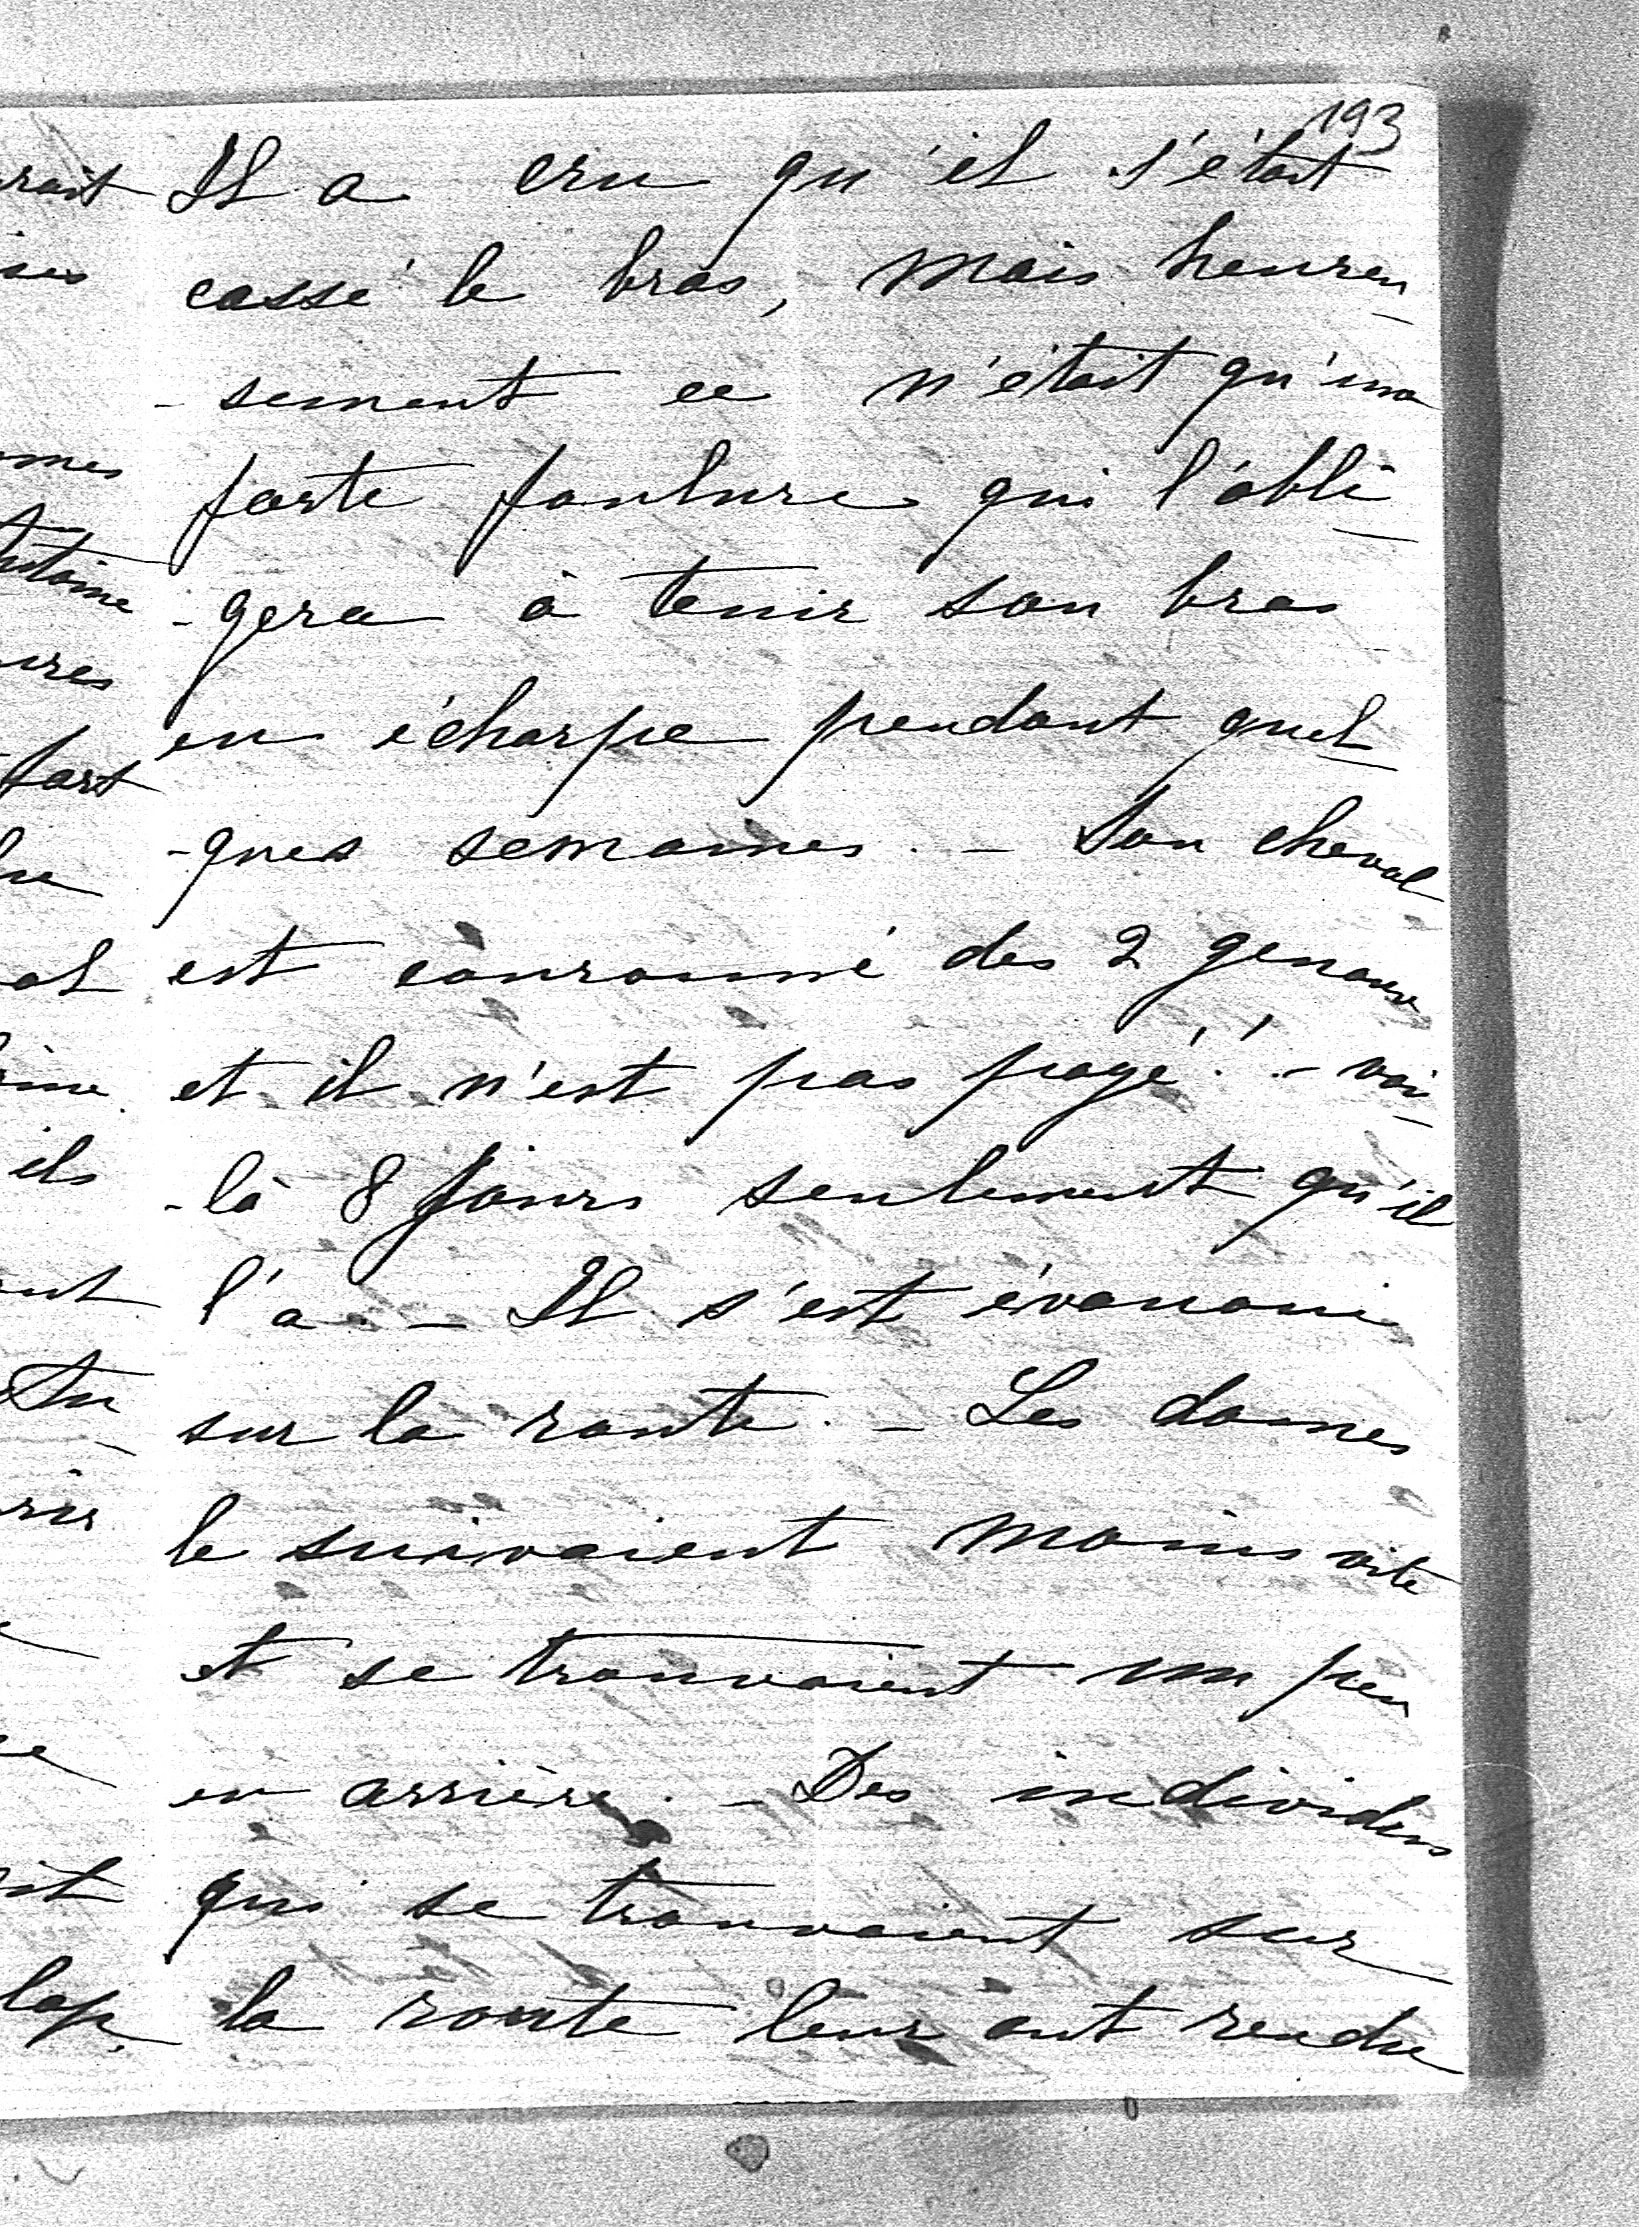 193
Il a cru qu'il s'était
cassé le bras, mais heureu
- sement ce n'était qu'une
forte foulure qui l'obli
- gera à tenir son bras
en écharpe pendant quel
- ques semaines. - Son cheval
est couronné des 2 genoux
et il n'est pas payé ! - voi
- là 8 jours seulement qu'il
l'a. - Il s'est évanoui
sur la route. - Les dames
le suivaient moins vite
et se trouvaient un peu
en arrière. - Des individus
qui se trouvaient sur
la route leur ont rendu